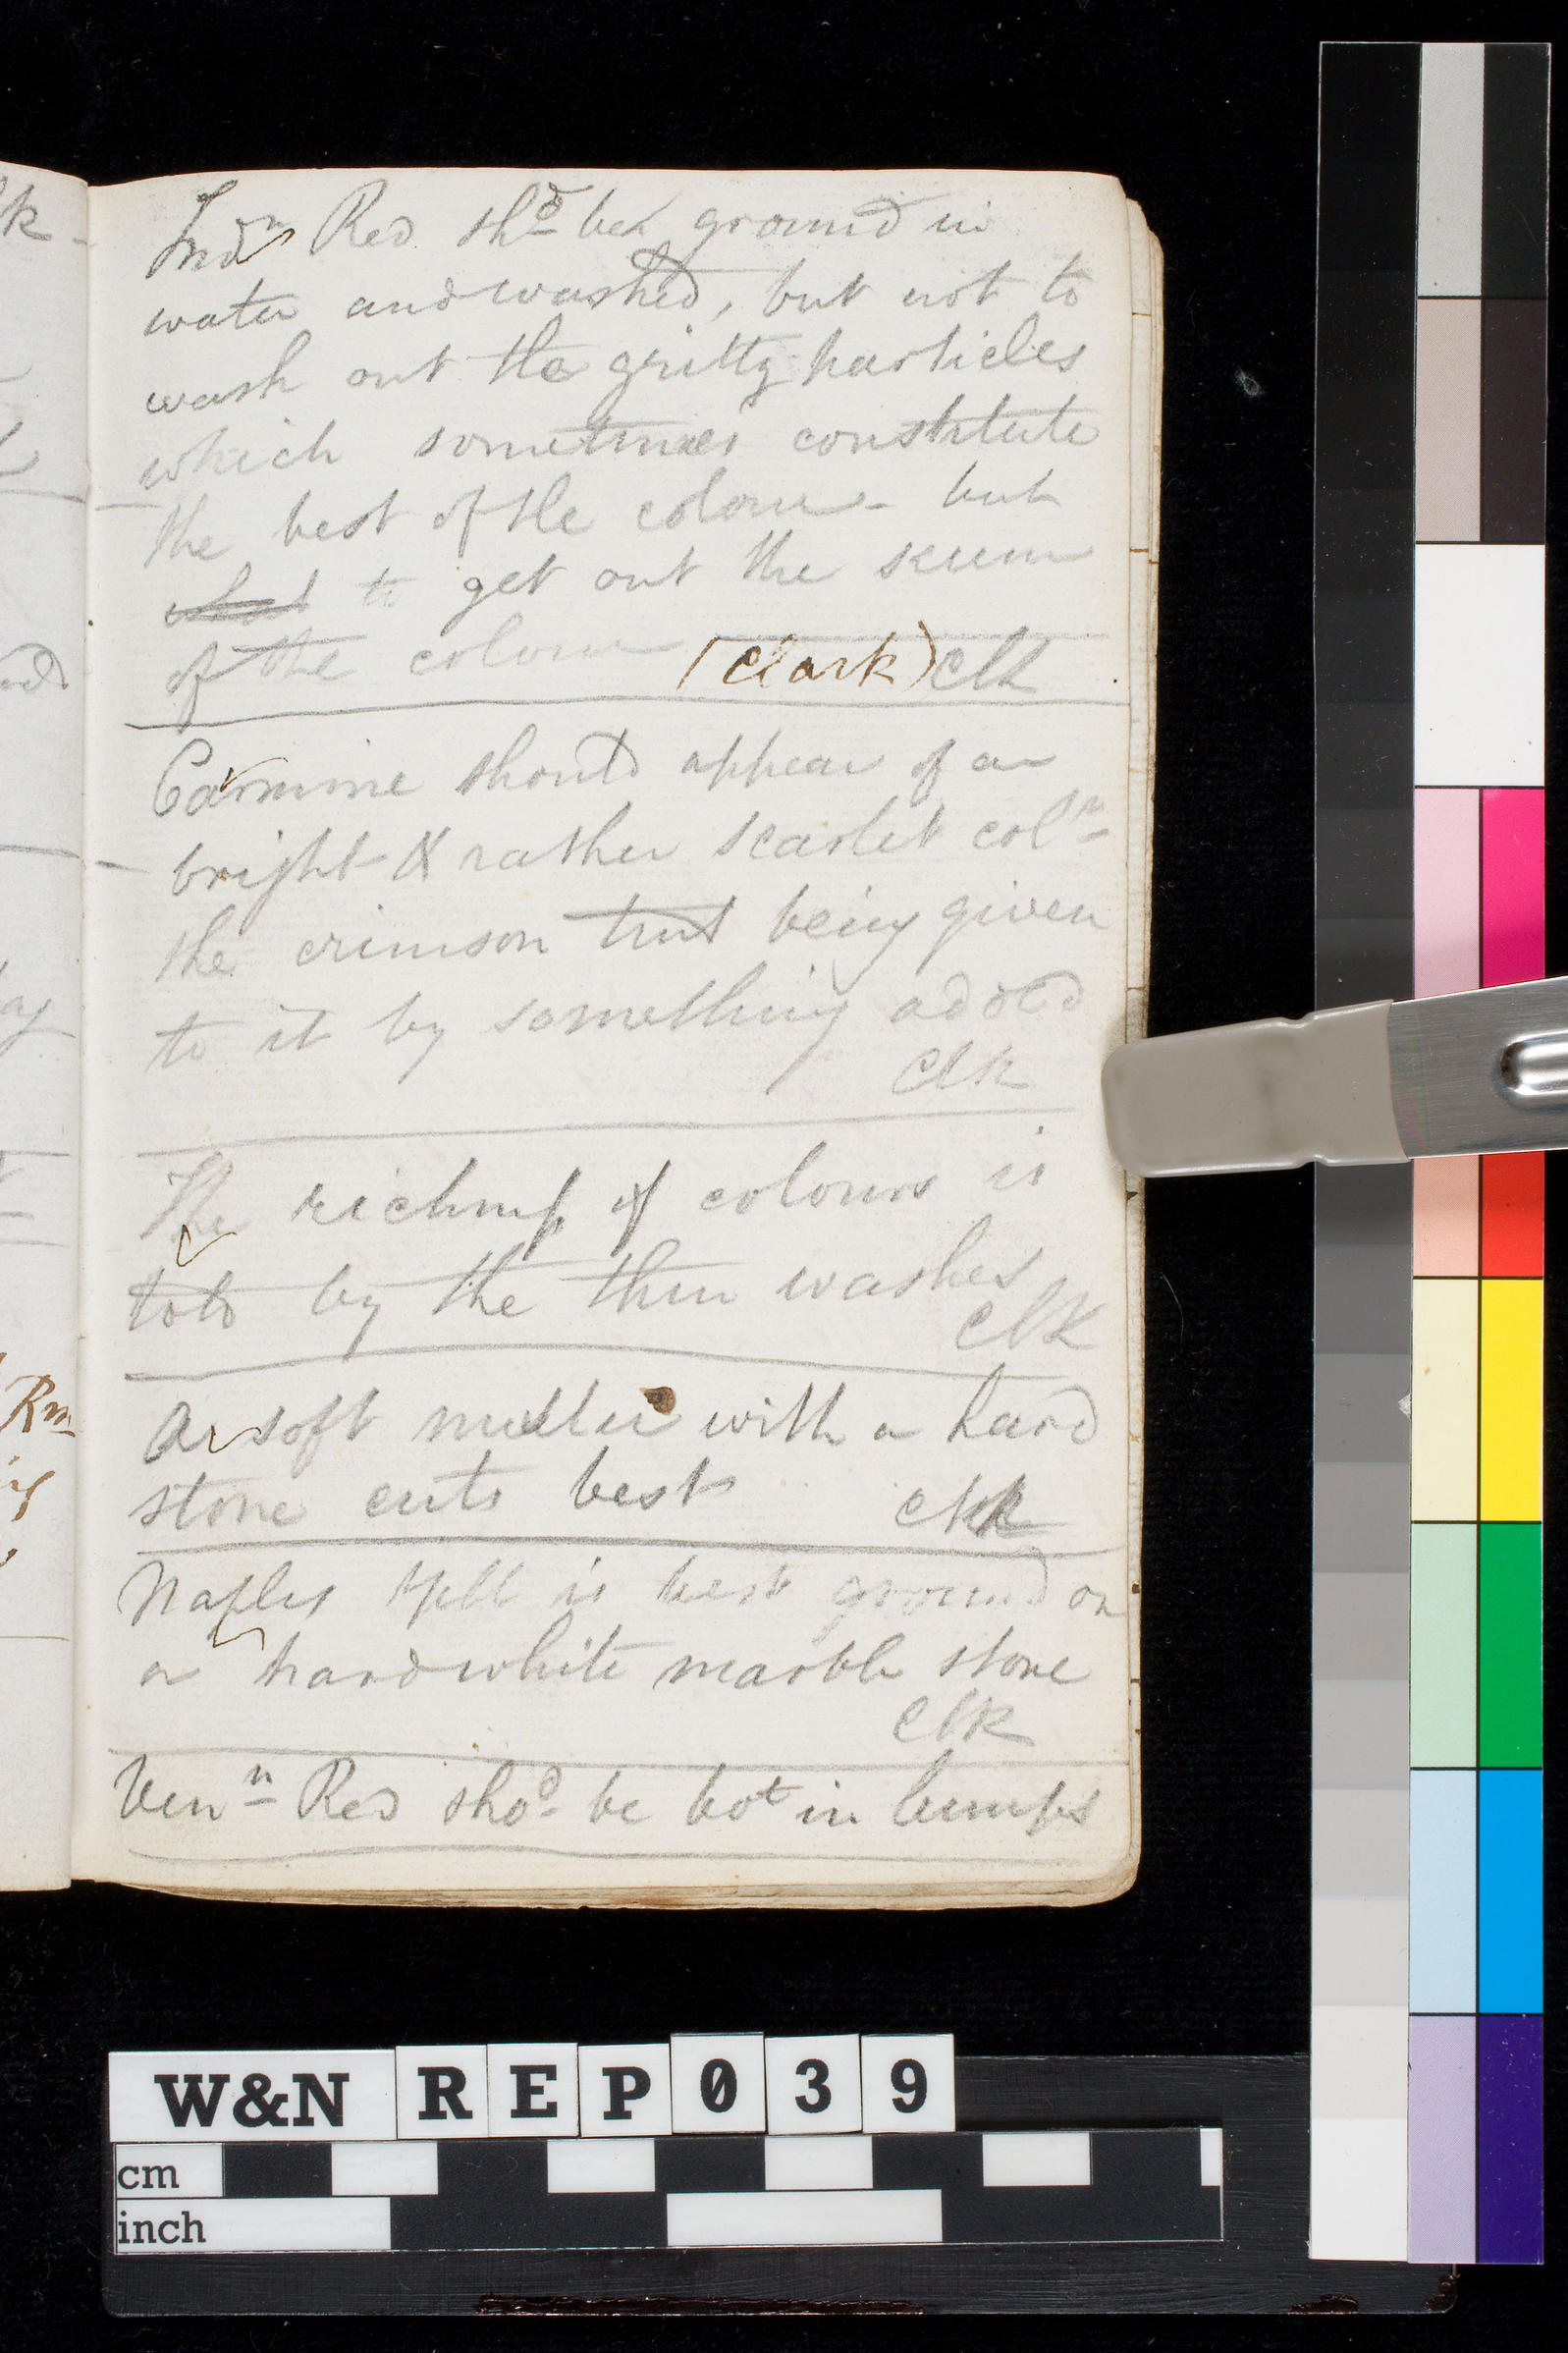 Indn Red shd be ground in
water and washed, but not to
wash out the gritty particles
which sometimes constitute
the best of the colour - but
to get out the scum
of the colour (Clark) Clk
Carmine should appear of a
bright & rather scarlet colr
the crimson tint being given
to it by something added
Clk
The richness of colours is
told by the thin washes
Clk
A soft muller with a hard
stone cuts best Clk
Naples Yell is best ground on
a hard white marble stone
Clk
Venn Red shod be bot in lumps
W&N REP039
cm
inch